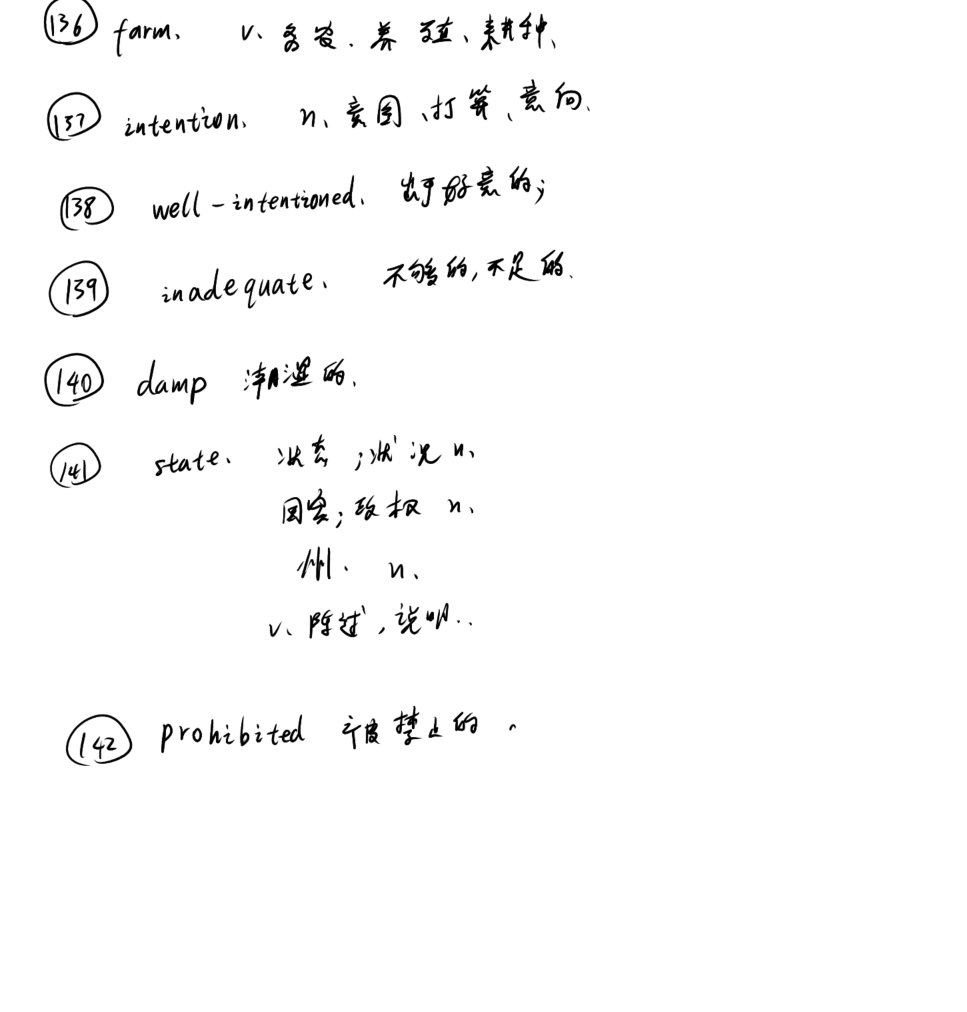 136 farm. v. 务农. 养殖、耕种、
137 intention. n、意图、打算、意向.
138 well-intentioned. 出于好意的;
139 inadequate、 不够的,不足的.
140 damp 潮湿的.
141 state. 状态;状况 n、
国家;政权 n、
州. n、
v、陈述,说明..
142 prohibited 被禁止的。